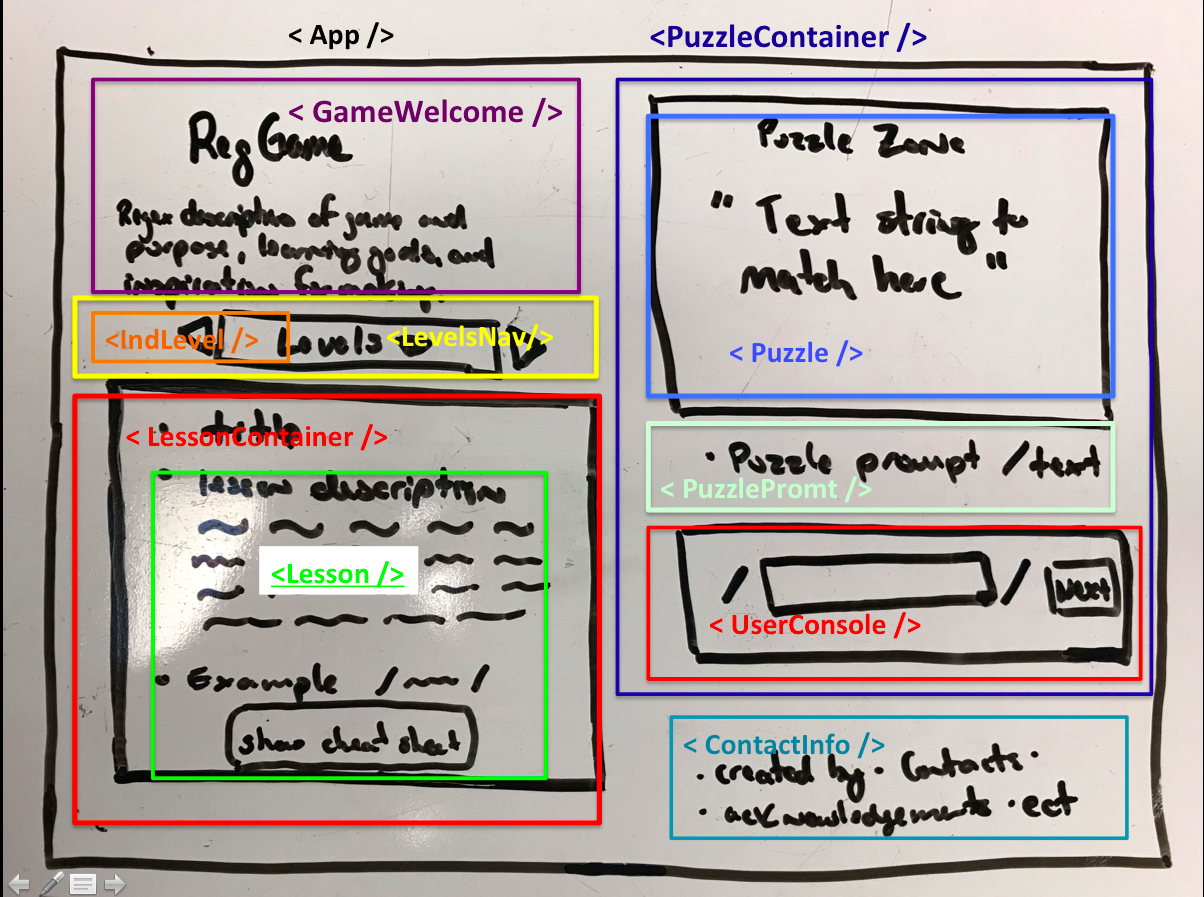 < App />
<PuzzleContainer />
< GameWelcome />
Reg Game
Regex description of game and
purpose, learning goals, and
inspiration for making.
<IndLevel />
Levels
<LevelsNav/>
< LessonContainer />
• title
• lesson description
<Lesson />
• Example / /
show cheat sheet
Puzzle Zone
" Text string to
match here "
< Puzzle />
• Puzzle prompt / text
< PuzzlePromt />
/ / Next
< UserConsole />
< ContactInfo />
• created by • Contacts •
• acknowledgements • ect